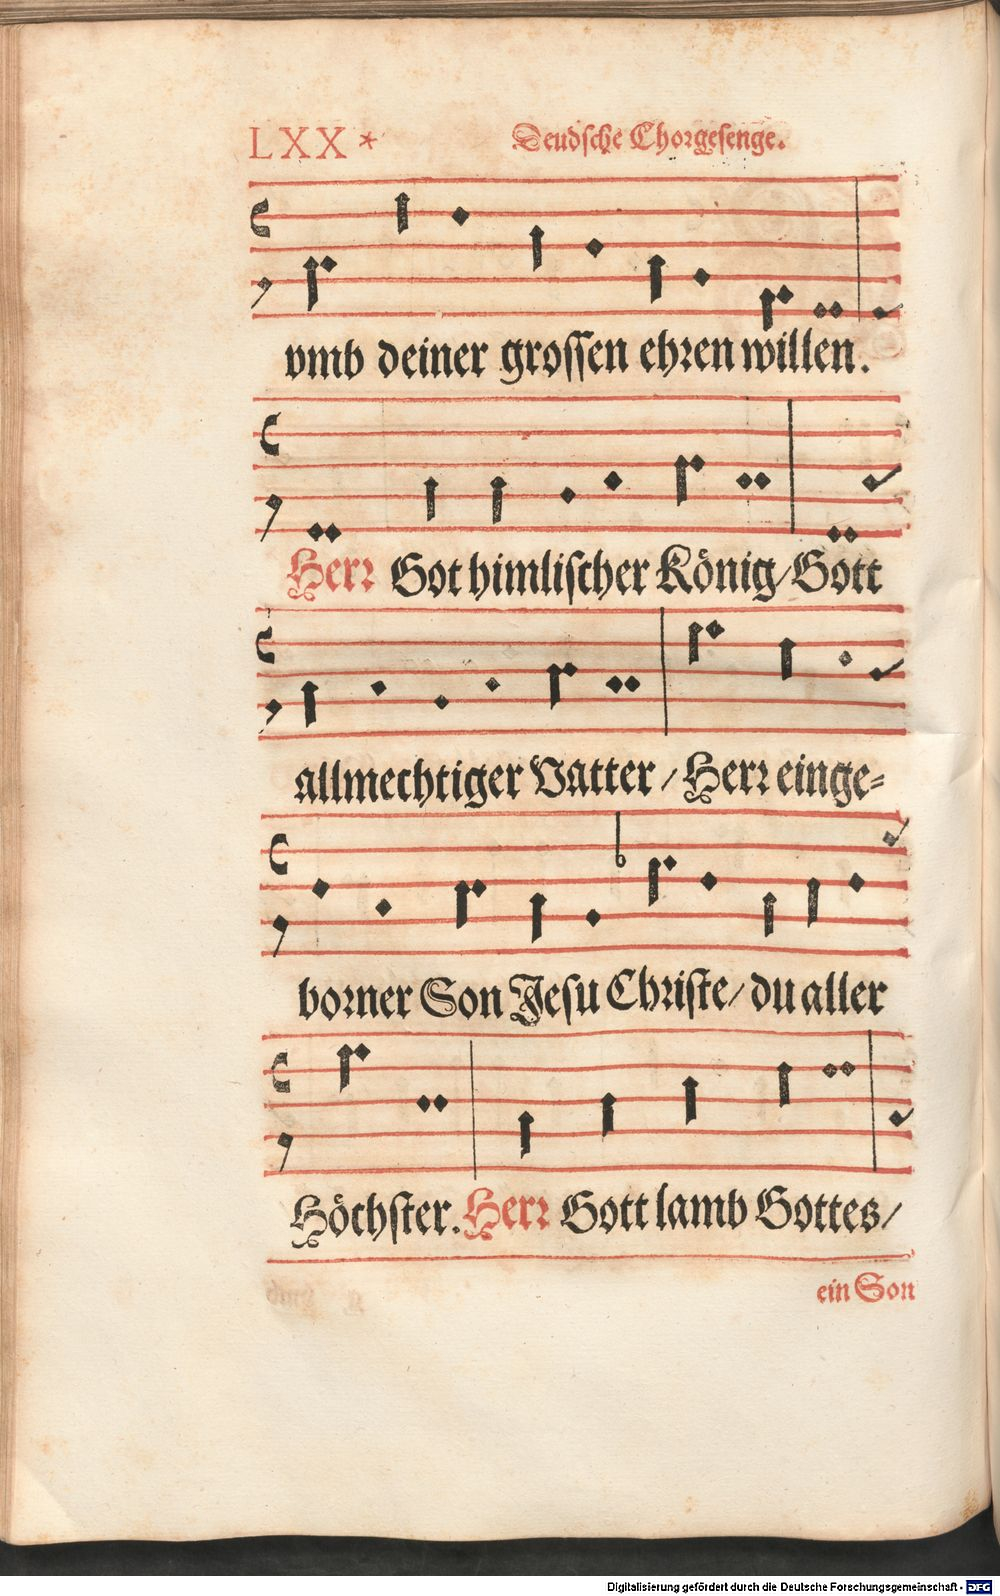 LXX * Deudsche Chorgesenge.
vmb deiner grossen ehren willen.
Herr Got himlischer König/ Gott
allmechtiger Vatter / Herr einge⸗
borner Son Jesu Christe/ du aller
Höchster. Herr Gott lamb Gottes/
ein Son
Digitalisierung gefördert durch die Deutsche Forschungsgemeinschaft - DFG